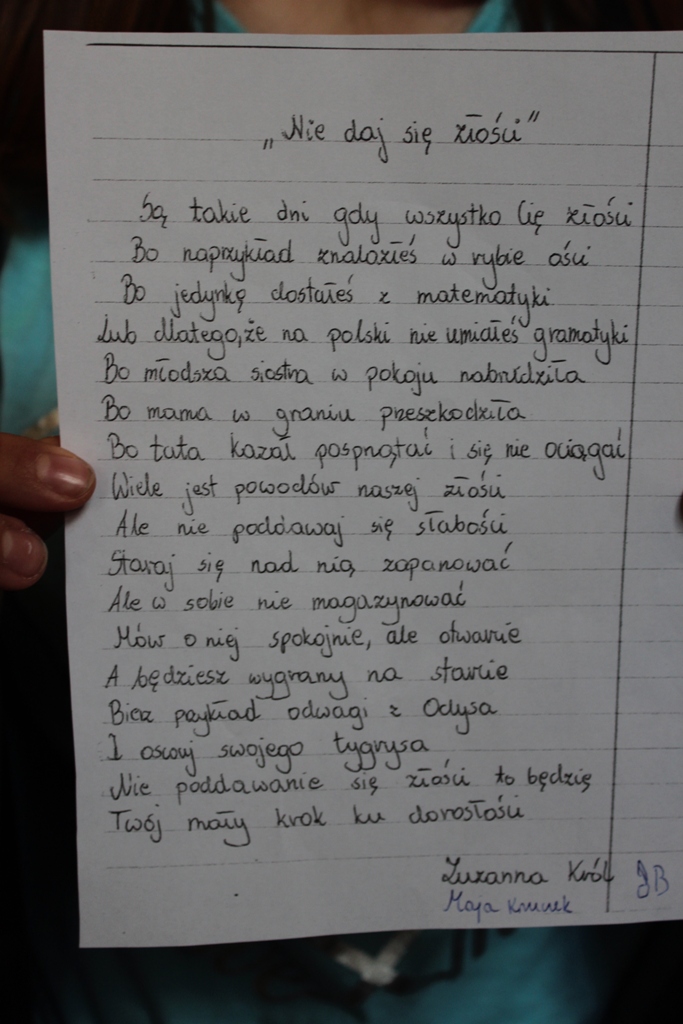 „Nie daj się złości”
Są takie dni gdy wszystko Cię złości
Bo naprzykład znalazłeś w rybie ości
Bo jedynkę dostałeś z matematyki
Lub dlatego, że na polski nie umiałeś gramatyki
Bo młodsza siostra w pokoju nabrudziła
Bo mama w graniu przeszkodziła
Bo tata kazał posprzątać i się nie ociągać
Wiele jest powodów naszej złości
Ale nie poddawaj się słabości
Staraj się nad nią zapanować
Ale w sobie nie magazynować
Mów o niej spokojnie, ale otwarcie
A będziesz wygrany na starcie
Bierz przykład odwagi z Odysa
I oswój swojego tygrysa
Nie poddawanie się złości to będzię
Twój mały krok ku dorosłości
Zuzanna Król JB
Maja